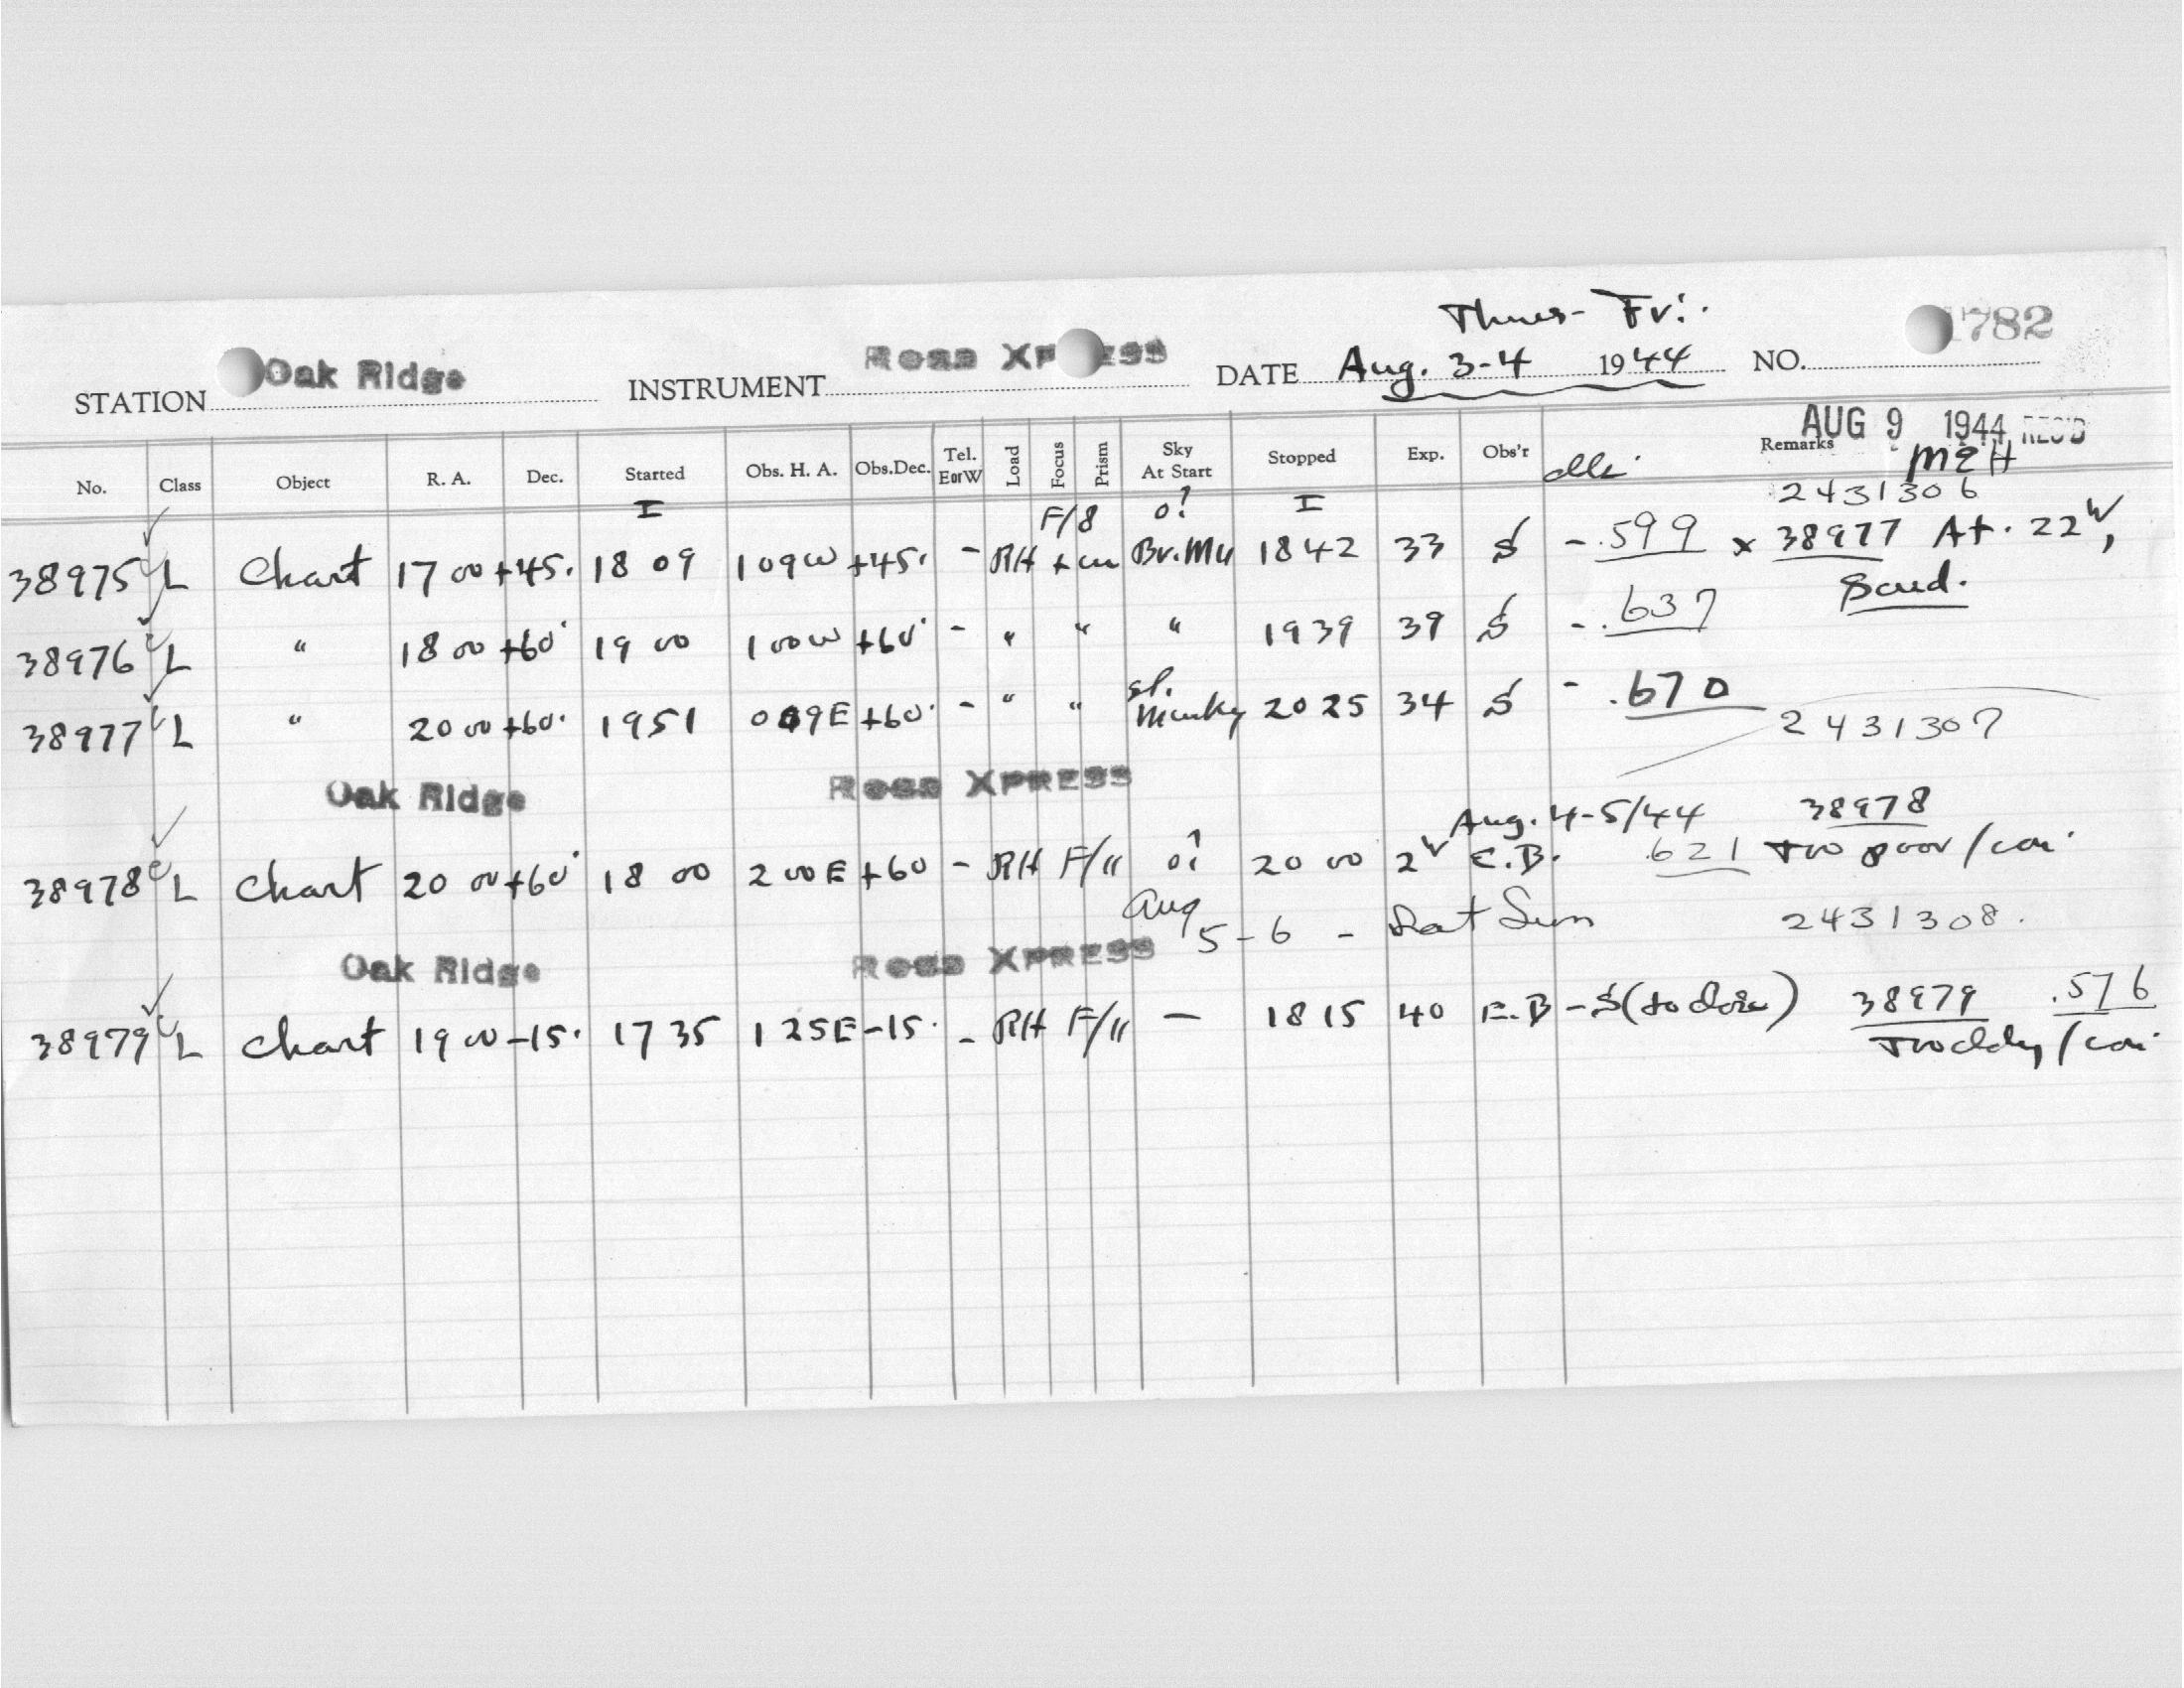 Thurs - Fri.
STATION Oak Ridge INSTRUMENT Ross XP ess DATE Aug. 3-4 1944 NO. 1782
AUG 9 1944 REC'D
No. Class Object R. A. Dec. Started Obs. H. A. Obs.Dec. Tel. E or W Load Focus Prism Sky At Start Stopped Exp. Obs'r Remarks
I F/8 o? I 2431306
38975 L Chart 17 00 +45. 18 09 1 09W +45. - RH Br. 1842 33 S -.599 x 38977 At. 22W,
38976 L " 18 00 +60 19 00 1 00W +60 - " " " 1939 39 S -.637
38977 L " 20 00 +60. 1951 0 09E +60. - " " sl. Murky 2025 34 S -.670
2431307
Oak Ridge Ross XPRESS
Aug. 4-5/44 38978
38978 L Chart 20 00 +60 18 00 2 00E +60 - RH F/11 o? 20 00 2 E.B. .621 Too poor/
Aug 5-6 - Sat Sun 2431308.
Oak Ridge Ross XPRESS
38979 L Chart 19 00 -15. 17 35 1 25E -15. - RH F/11 — 1815 40 E.B - S 38979 .576